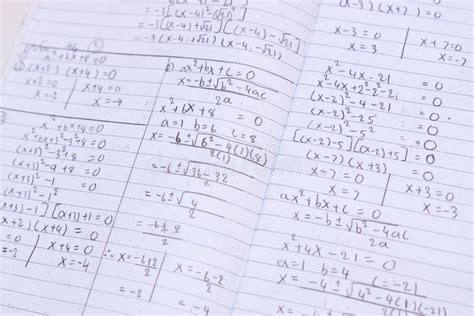 = -3(x-4)²-(√21)²]
= -3(x-4+√21)(x-4)-√21
= -3(x-4+√21)(x-4-√21)
x²+6x+8=0
(x+2)(x+4)=0
x+2=0 | x+4=0
x=-2 | x=-4
x²+6x+8=0
(x+3)²-1=0
(x+3)-1][(x+3)+1=0
(x+2)(x+4)=0
x+4=0
=-2 | x=-4
b) ax²+bx+c=0
x=-b±√b²-4ac
2a
x²+6x+8=0
a=1 b=6 c=8
x=-6±√6²-4(1)(8)
2(1)
=-6±√36-32
2
=-6±√4
2
=-6±2
2
∴x=-6+2 | x=-6-2
2 | 2
=-2 | =-4
-3)(x+7)=0
x-3=0 | x+7=0
x=3 | x=-7
x²-4x-21=0
x²-4x+2²-2²-21=0
(x-2)²-4-21=0
(x-2)²-25=0
(x-2)²-5²=0
[(x-2)-5][(x-2)+5]=0
(x-7)(x+3)=0
x-7=0 | x+3=0
x=7 | x=-3
ax²+bx+c=0
x=-b±√b²-4ac
2a
x²+4x-21=0
a=1 b=4 c=-21
x=-4±√4²-4(1)(-21)